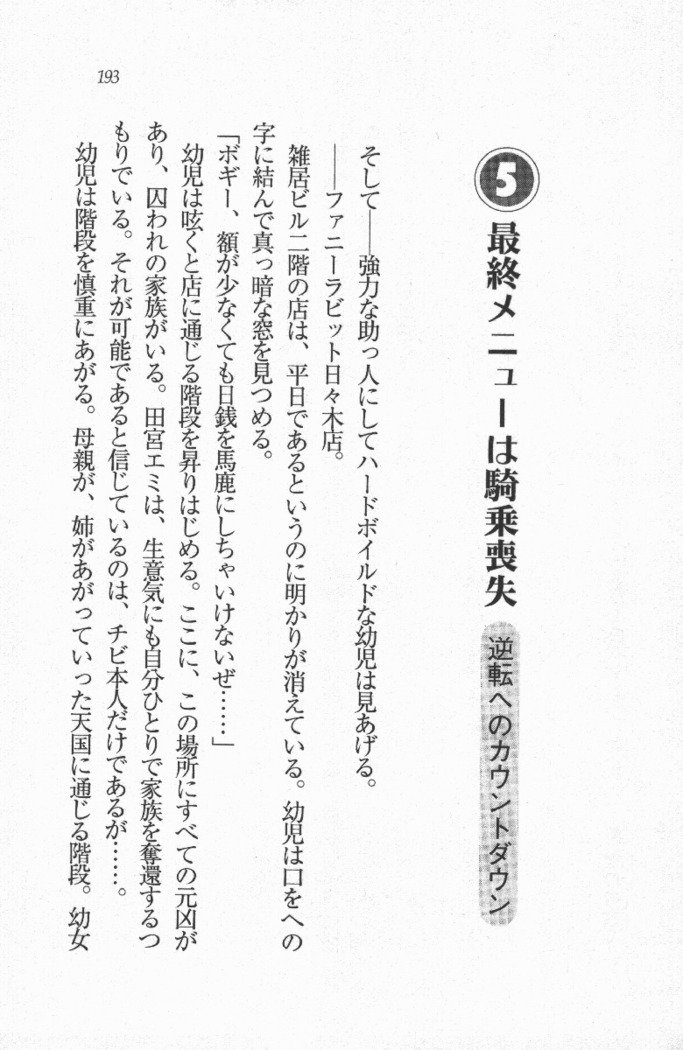 193
5 最終メニューは騎乗喪失 逆転へのカウントダウン
そして――強力な助っ人にしてハードボイルドな幼児は見あげる。
――ファニーラビット日々木店。
雑居ビル二階の店は、平日であるというのに明かりが消えている。幼児は口をへの
字に結んで真っ暗な窓を見つめる。
「ボギー、額が少なくても日銭を馬鹿にしちゃいけないぜ……」
幼児は呟くと店に通じる階段を昇りはじめる。ここに、この場所にすべての元凶が
あり、囚われの家族がいる。田宮エミは、生意気にも自分ひとりで家族を奪還するつ
もりでいる。それが可能であると信じているのは、チビ本人だけであるが……。
幼児は階段を慎重にあがる。母親が、姉があがっていった天国に通じる階段。幼女